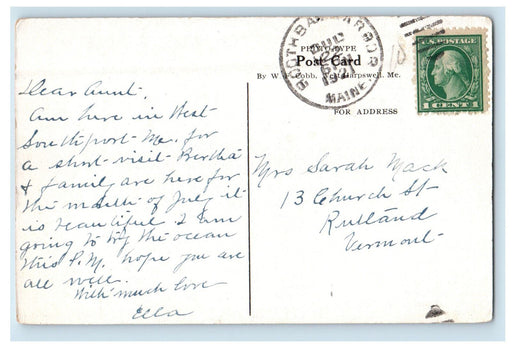 PHOTO-TYPE
Post Card
By W. Cobb, Harpswell, Me.
BOOTHBAY HARBOR
MAINE.
U.S. POSTAGE
1 CENT 1
FOR ADDRESS
Dear Aunt.
Am here in West
Southport Me. for
a short visit Bertha
& family are here for
the month of July it
is beautiful I am
going to try the ocean
this P.M. hope you are
all well.
With much love
Ella
Mrs Sarah Mack
13 Church St
Rutland
Vermont